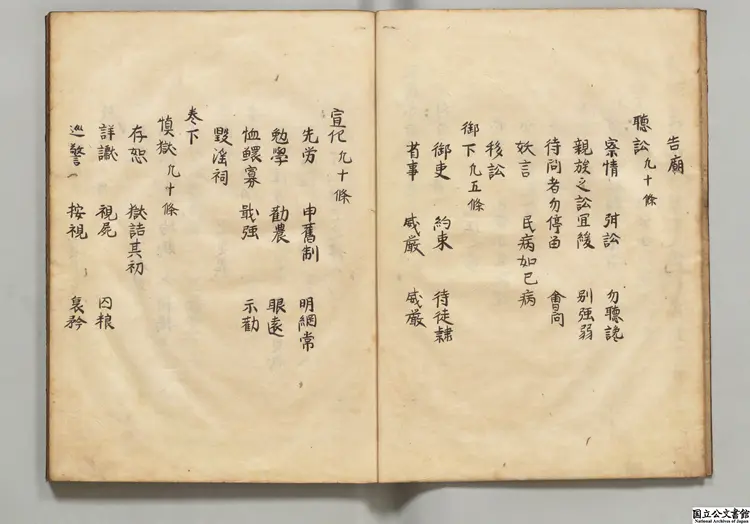 告廟
聽訟凡十條
察情 弭訟 勿聽讒
親族之訟宜緩 別强弱
待問者勿停留 會問
妖言 民病如已病
移訟
御下凡五條
御吏 約束 待徒隷
省事 威严 威厳
宣化凡十條
先労 申舊制 明綱常
勉學 勸農 服遠
恤鰥寡 戢强 示勸
毀淫祠
巻下
慎獄凡十條
存恕 獄詰其初
詳讞 視屍 囚粮
巡警 按視 哀矜
国立公文書館
National Archives of Japan